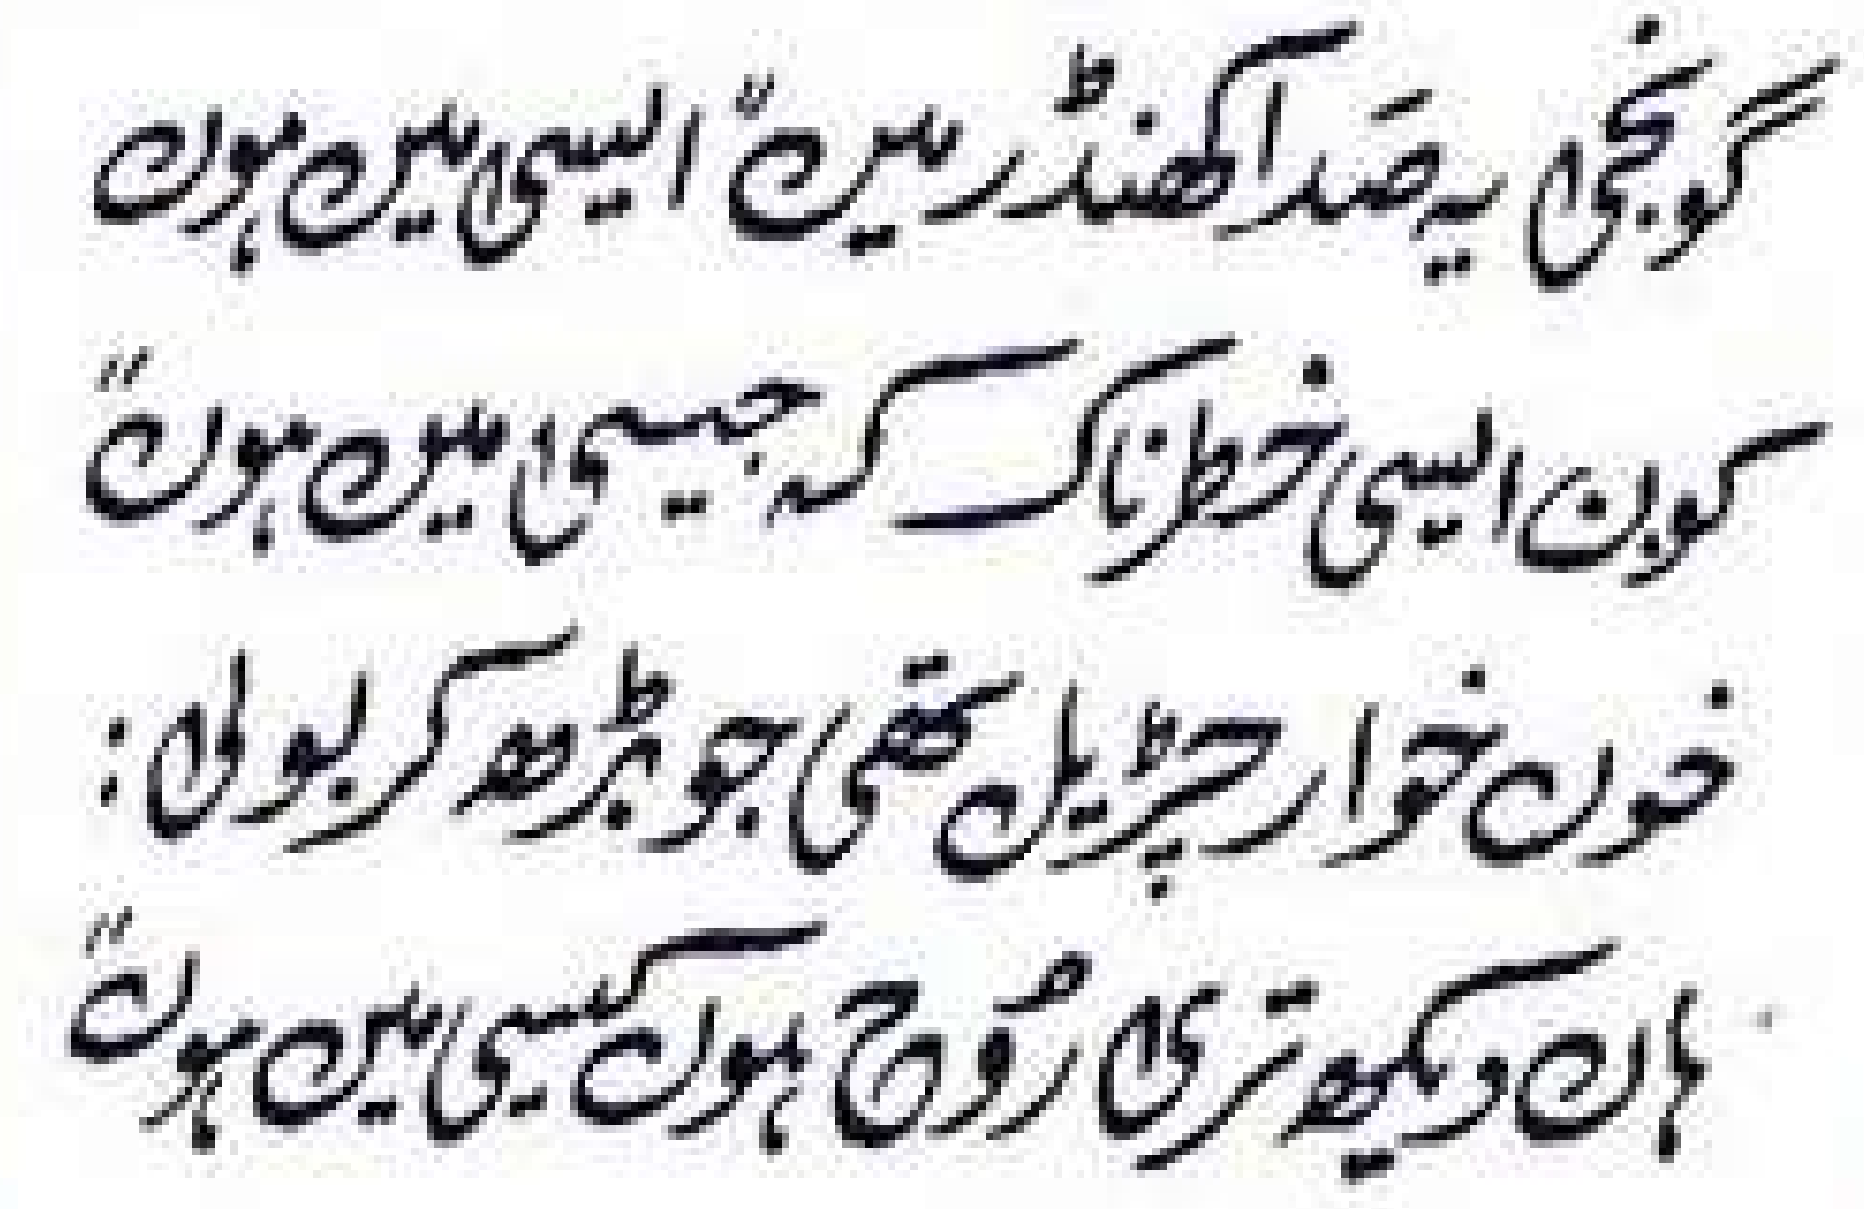 گونجی یہ صدا کھنڈر میں " ایسی میں ہوں
کون ایسی خطرناک کہ جیسی میں ہوں "
خوں خوار چڑیل تھی جو بڑھ کر بولی :
ہاں دیکھ تری رُوح ہوں کیسی میں ہوں "